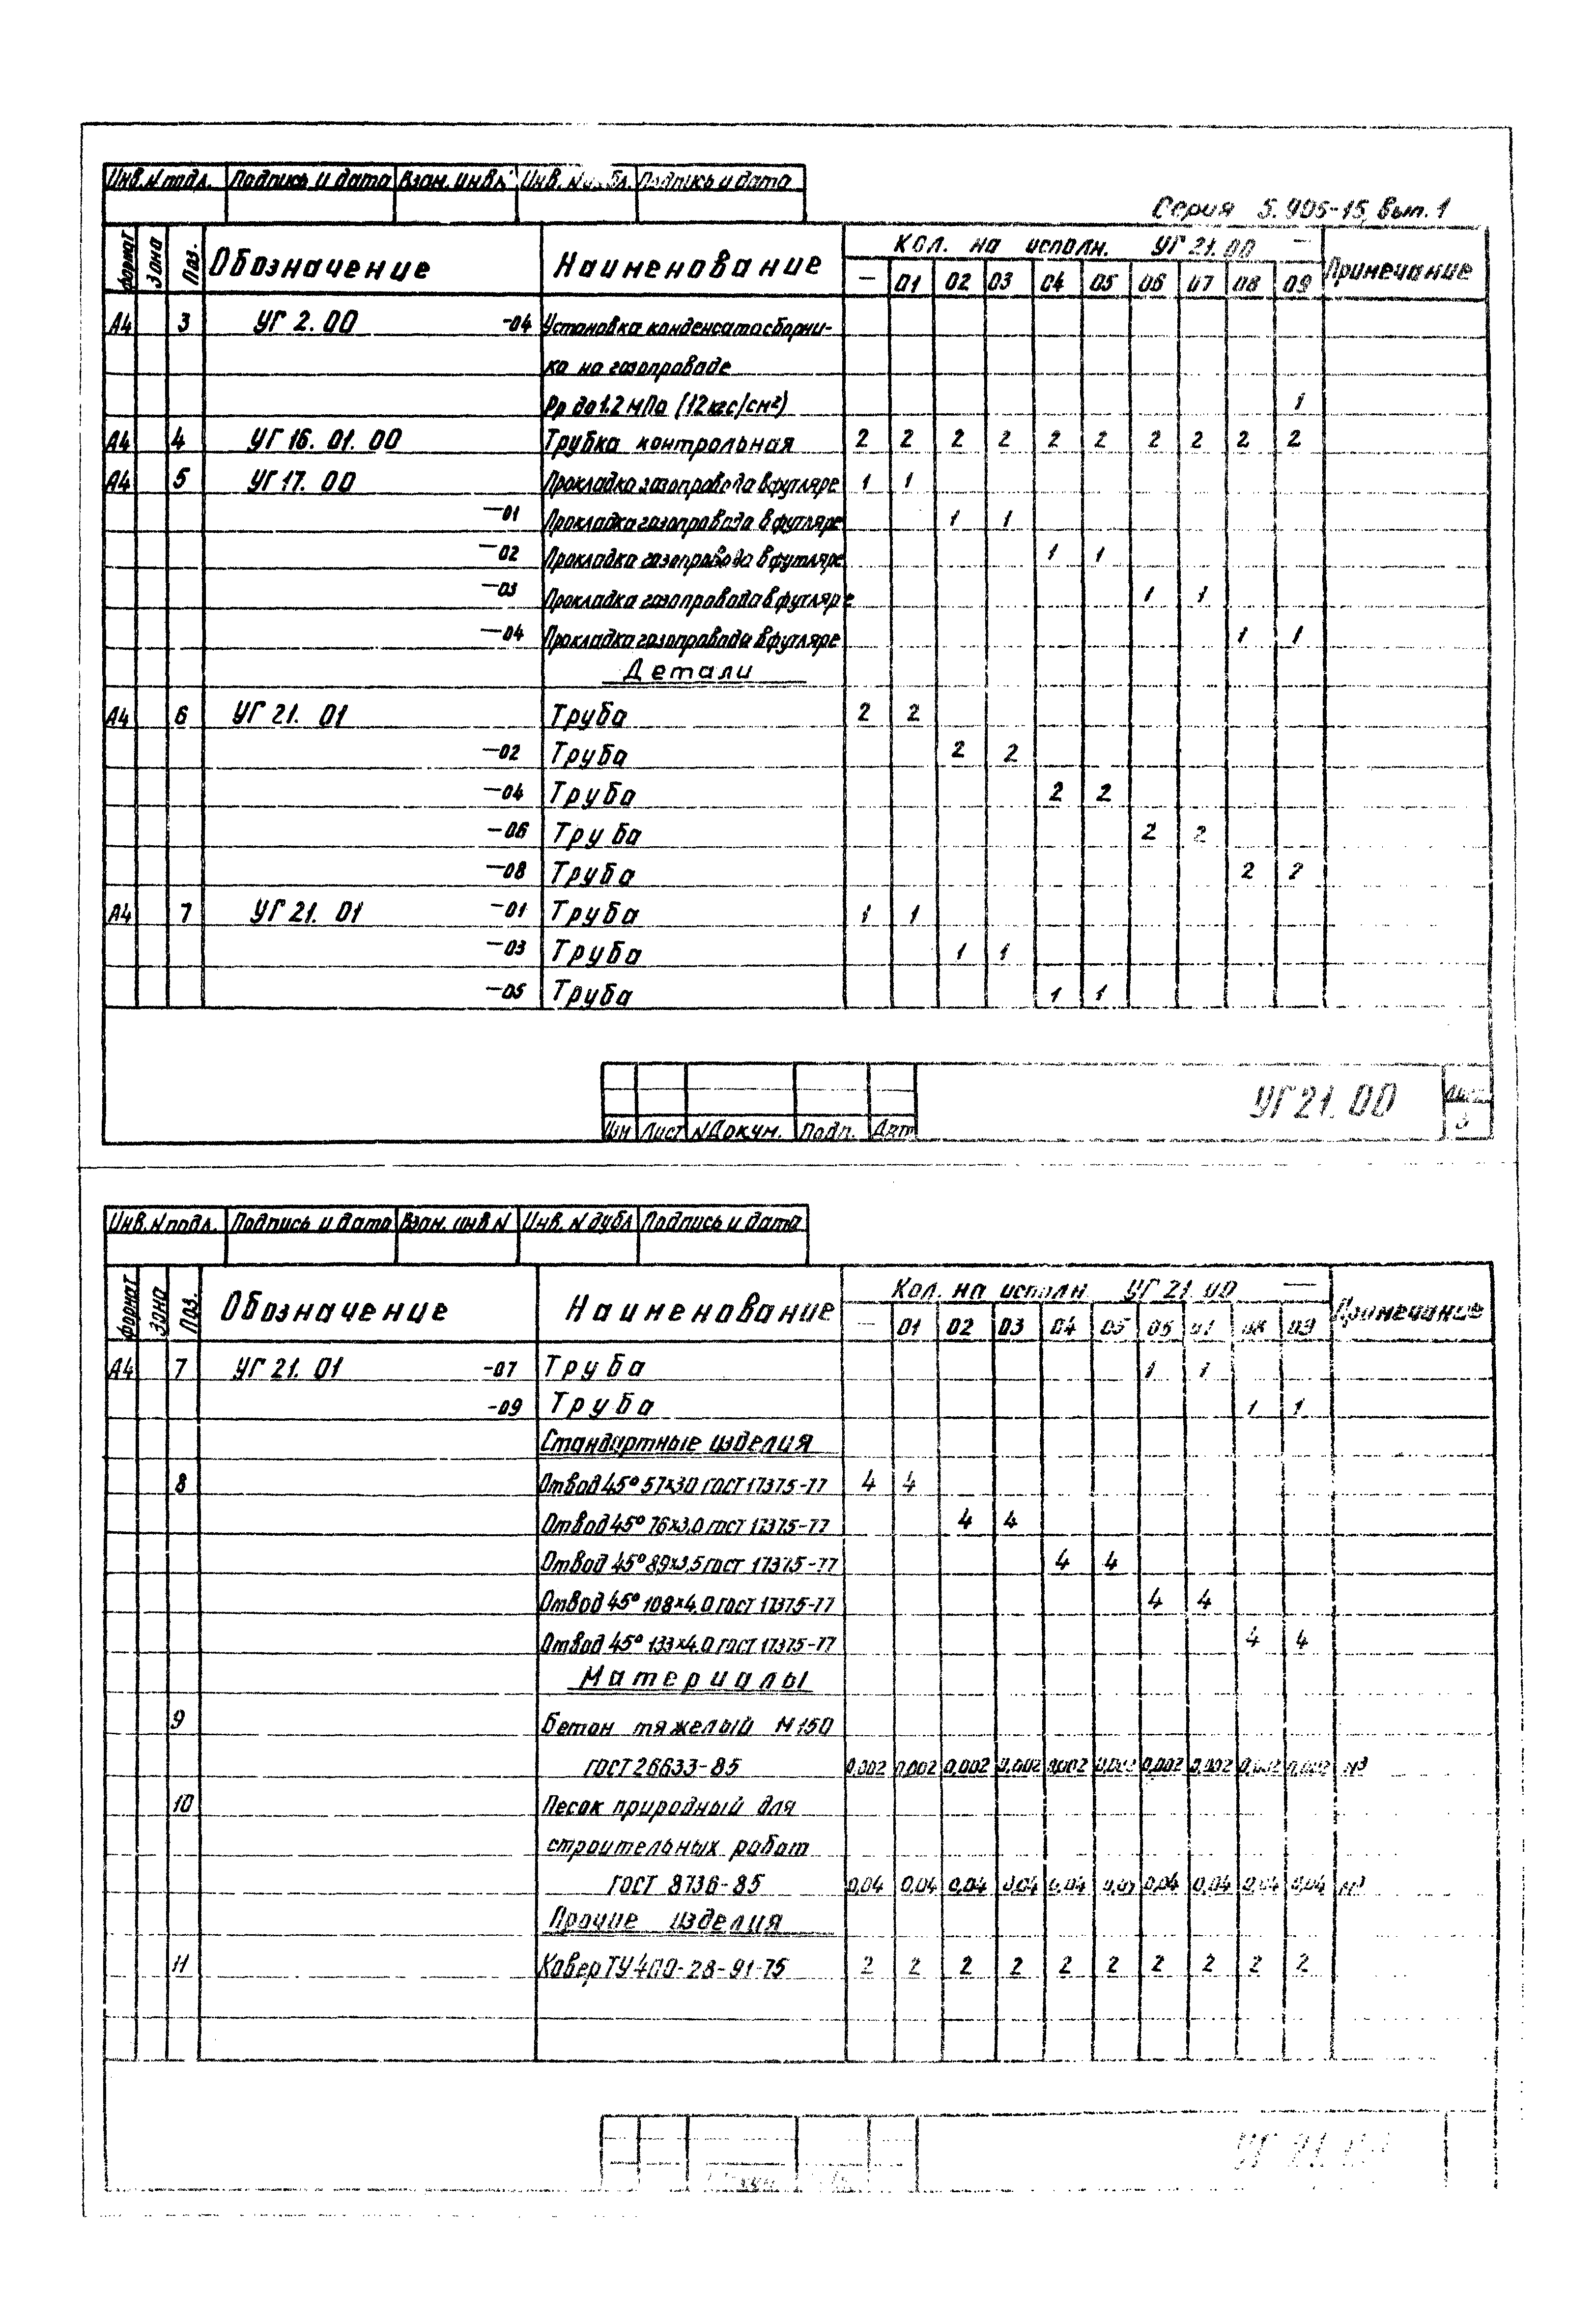 Инв.N подл. Подпись и дата Взам. инв.N Инв. N дубл. Подпись и дата
Серия 5.905-15, Вып. 1
формат Зона Поз. Обозначение Наименование Кол. на исполн. УГ 21.00 — Примечание
— 01 02 03 04 05 06 07 08 09
А4 3 УГ 2.00 -04 Установка конденсатосборни-
ка на газопроводе
Рр до 1.2 МПа (12 кгс/см²) 1
А4 4 УГ 16.01.00 Трубка контрольная 2 2 2 2 2 2 2 2 2 2
А4 5 УГ 17.00 Прокладка газопровода в футляре 1 1
—01 Прокладка газопровода в футляре 1 1
—02 Прокладка газопровода в футляре 1 1
—03 Прокладка газопровода в футляре 1 1
—04 Прокладка газопровода в футляре 1 1
Детали
А4 6 УГ 21.01 Труба 2 2
—02 Труба 2 2
—04 Труба 2 2
—06 Труба 2 2
—08 Труба 2 2
А4 7 УГ 21.01 —01 Труба 1 1
—03 Труба 1 1
—05 Труба 1 1
Лист N Докум. Подп. Дат
УГ 21.00
Лист
3
Инв.N подл. Подпись и дата Взам. инв N Инв. N дубл Подпись и дата
формат Зона Поз. Обозначение Наименование Кол. на исполн. УГ 21.00 — Примечание
— 01 02 03 04 05 06 07 08 09
А4 7 УГ 21.01 -07 Труба 1 1
-09 Труба 1 1
Стандартные изделия
8 Отвод 45° 57×3.0 ГОСТ 17375-77 4 4
Отвод 45° 76×3.0 ГОСТ 17375-77 4 4
Отвод 45° 89×3.5 ГОСТ 17375-77 4 4
Отвод 45° 108×4.0 ГОСТ 17375-77 4 4
Отвод 45° 133×4.0 ГОСТ 17375-77 4 4
Материалы
9 Бетон тяжелый М150
ГОСТ 26633-85 0,002 0,002 0,002 0,002 0,002 0,002 0,002 0,002 0,002 0,002 м³
10 Песок природный для
строительных работ
ГОСТ 8736-85 0,04 0,04 0,04 0,04 0,04 0,04 0,04 0,04 0,04 0,04 м³
Прочие изделия
11 Ковер ТУ 400-28-91-75 2 2 2 2 2 2 2 2 2 2
УГ 21.00